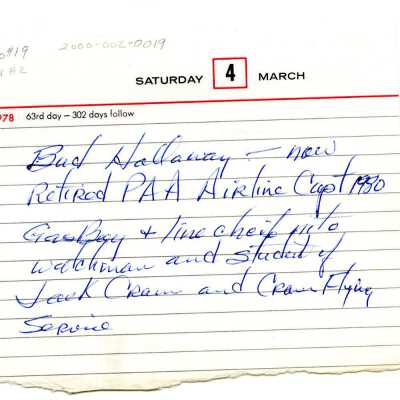 0#19 2000-002-0019
SATURDAY 4 MARCH
978 63rd day – 302 days follow
Bud Hallaway – now
Retired PAA Airline Capt 1980
Gas Boy + line cheif
watchman and student of
Jack Cram and Cram Flying
Service